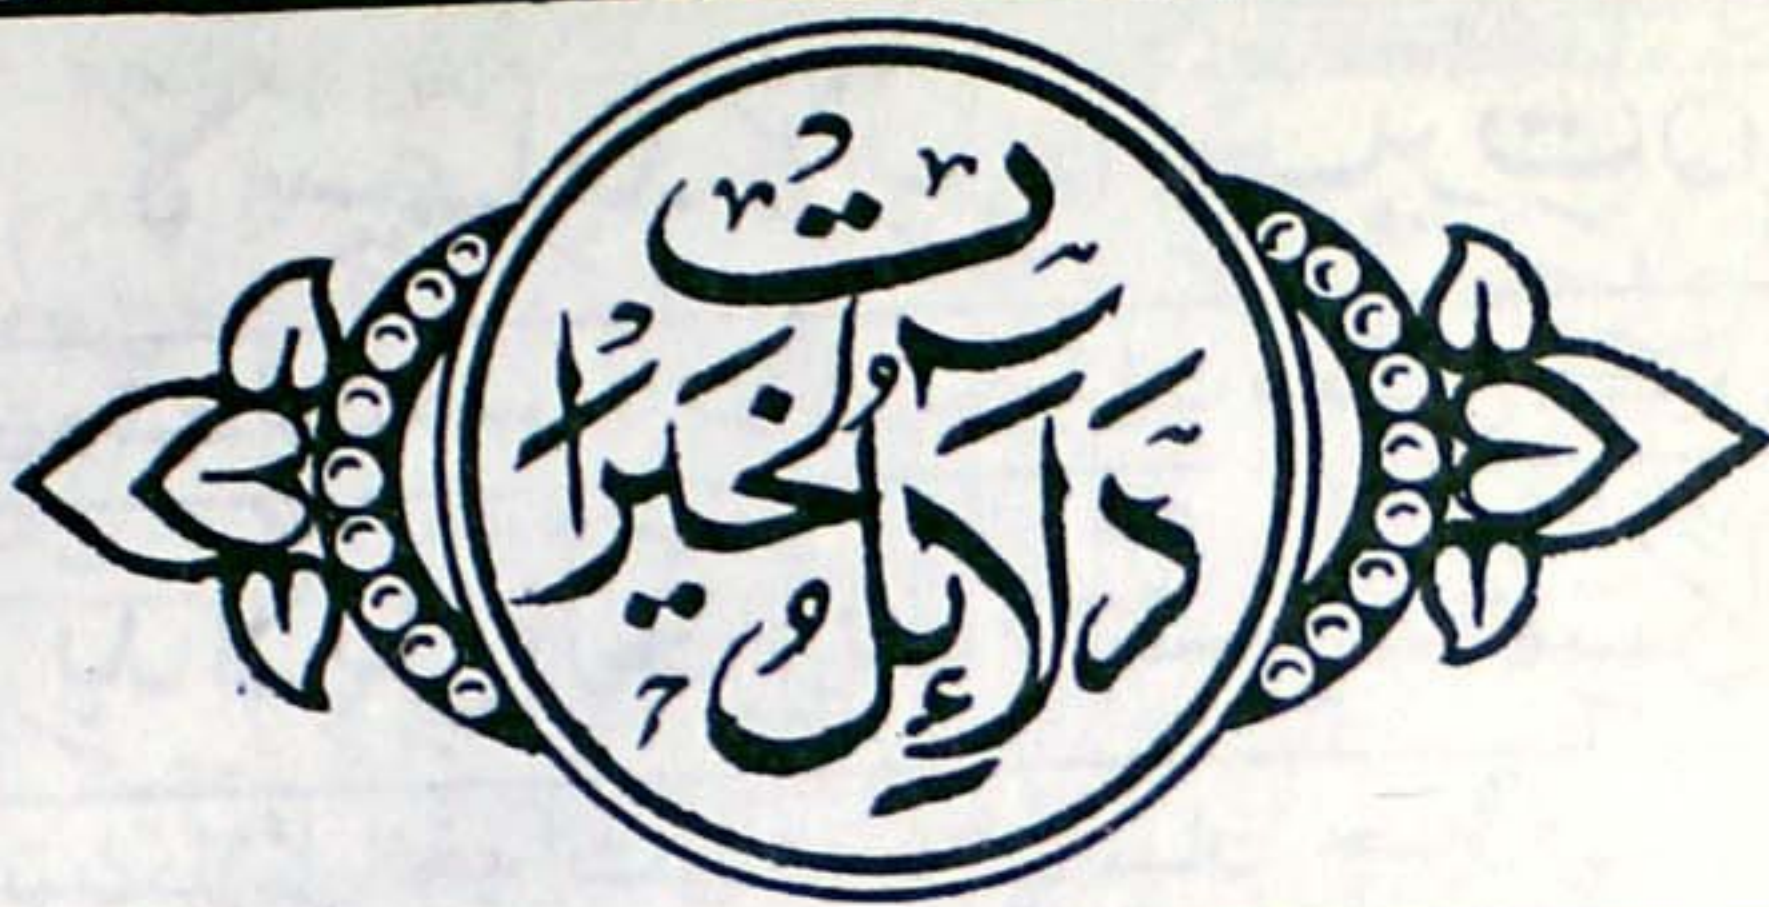 دَلَآئِلُ الْخَيْرَاتُ